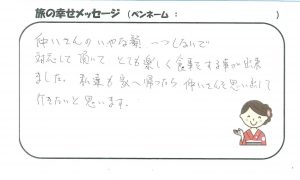 旅の幸せメッセージ (ペンネーム： )
仲いさんのいやな顔一つしないで
対応して頂いて とても楽しく食事をする事が出来
ました。私達も家へ帰ったら 仲いさんを思い出して
行きたいと思います。